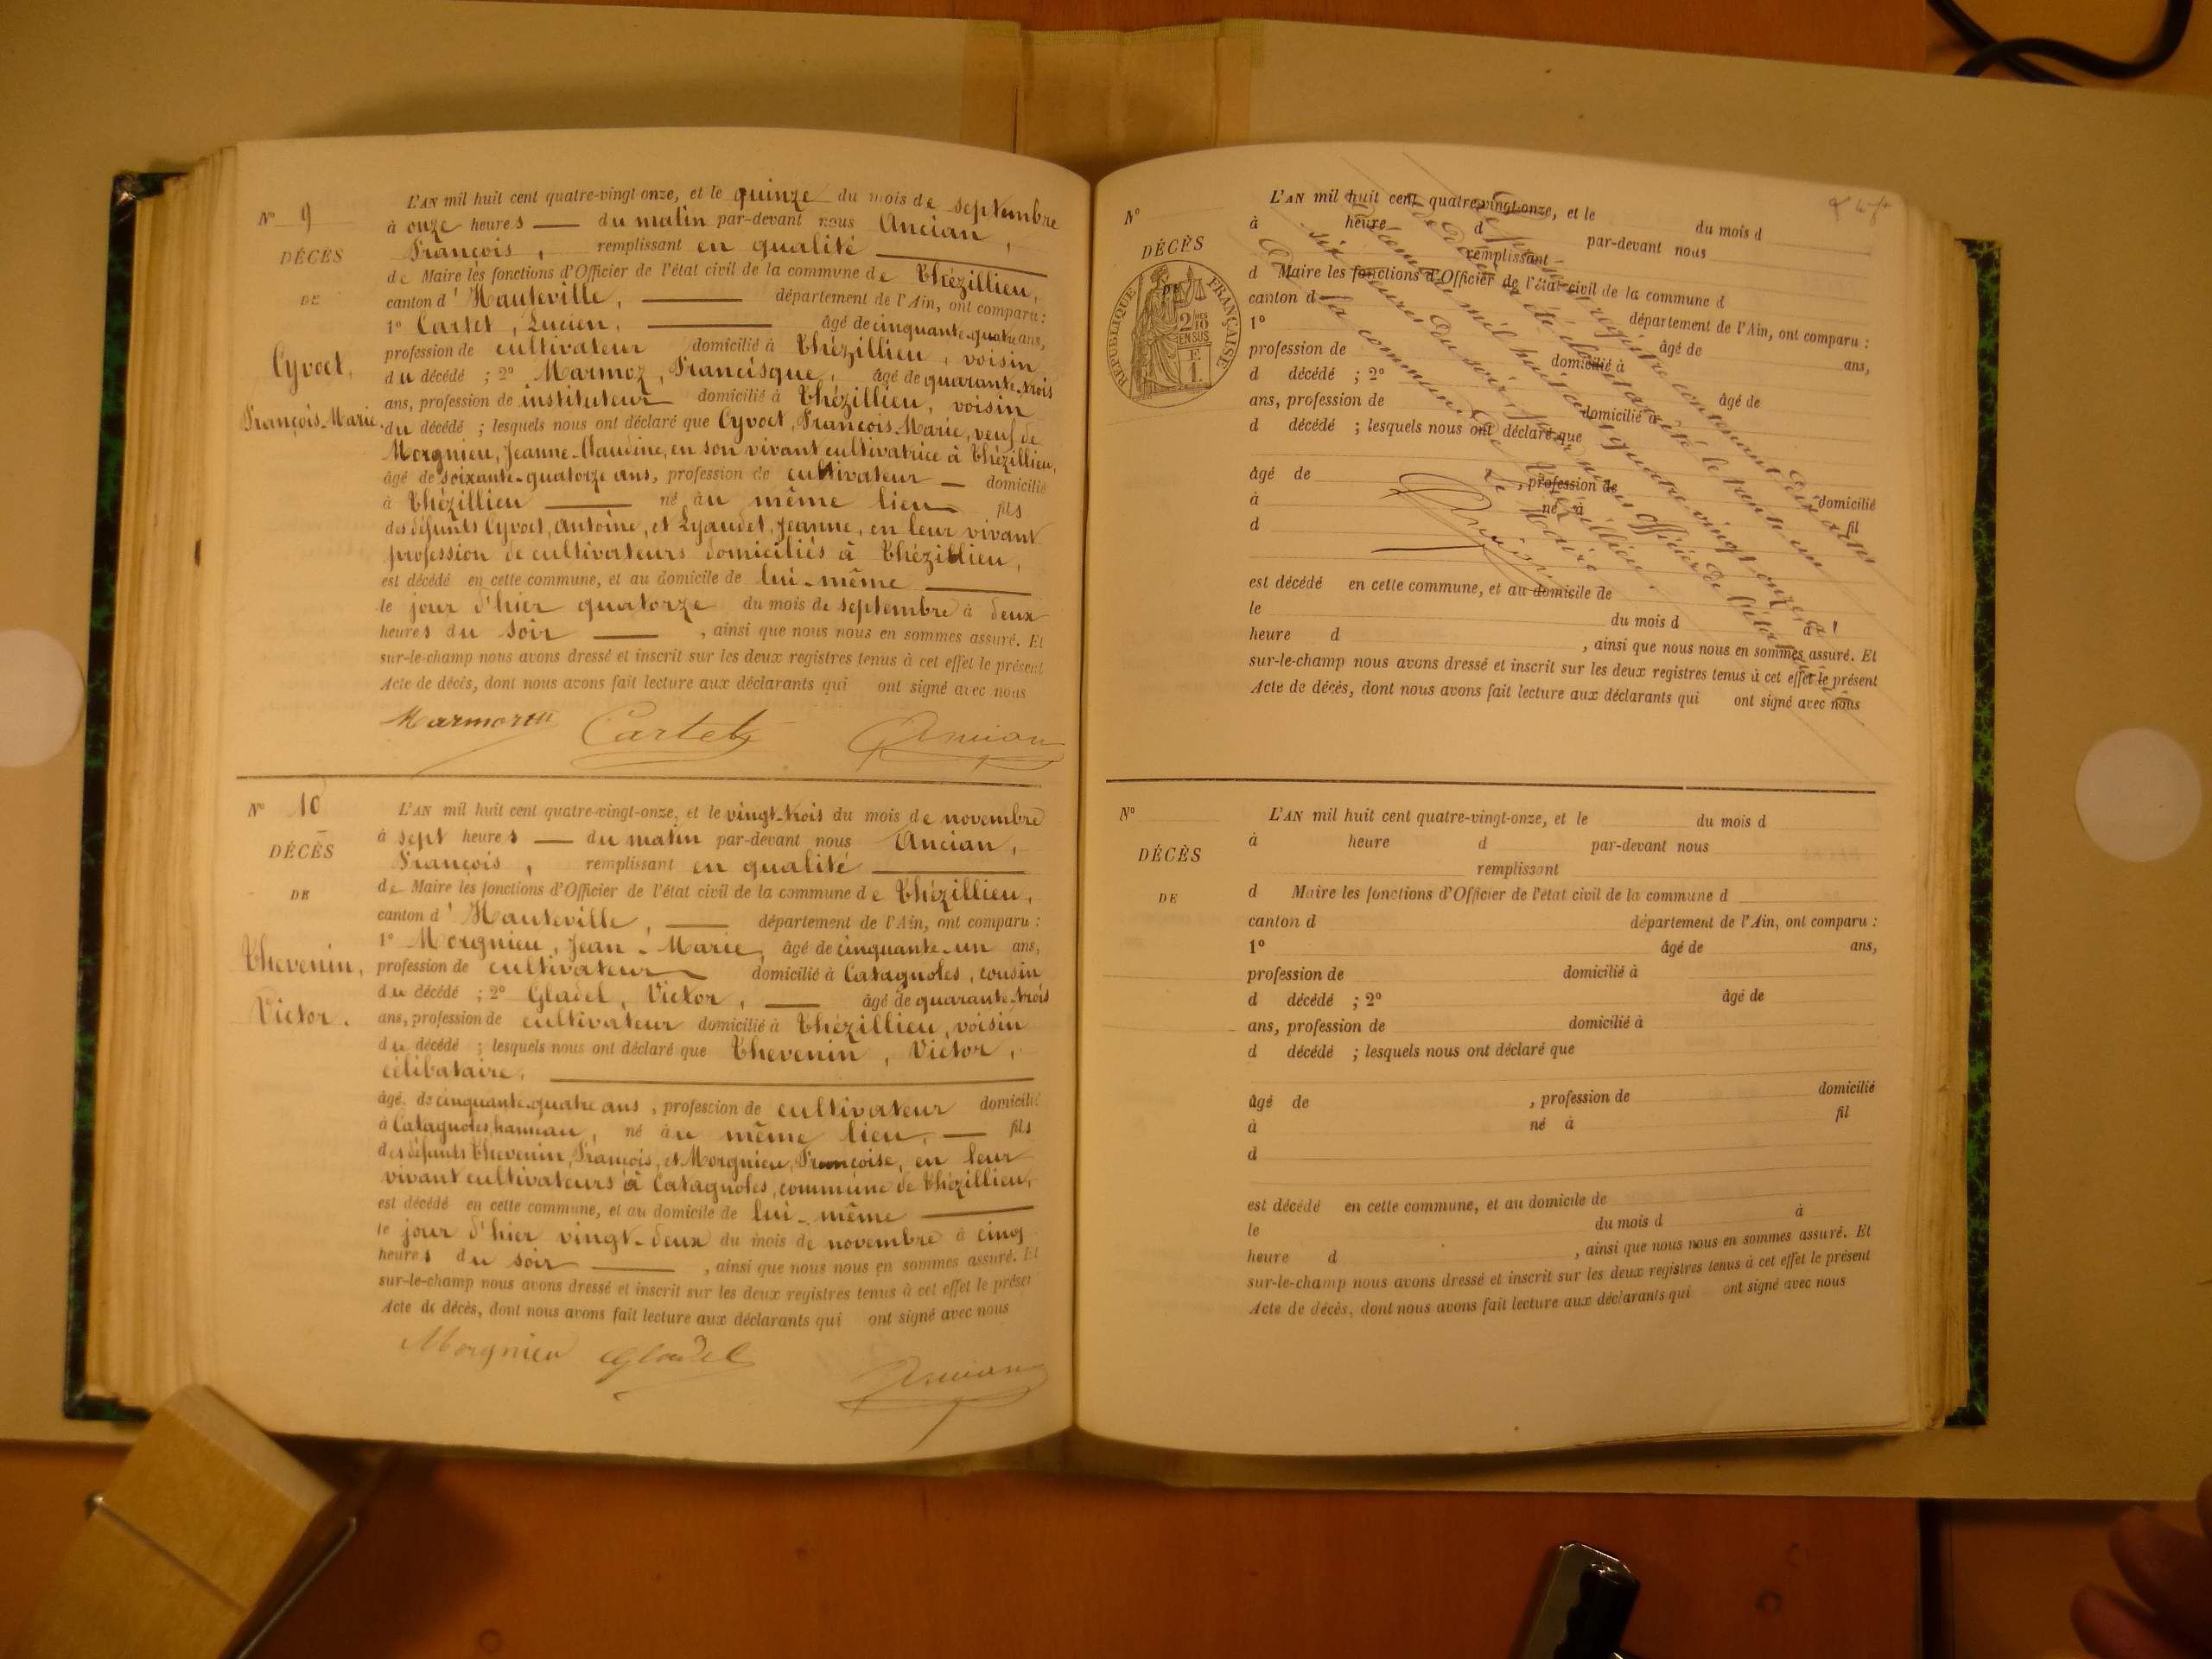 N° 9
DÉCÈS
DE
Cyvoct,
François-Marie.
L'AN mil huit cent quatre-vingt onze, et le quinze du mois de septembre
à onze heures — du matin par-devant nous Ancian,
François, — remplissant en qualité
de Maire les fonctions d'Officier de l'état civil de la commune de Thézillieu,
canton d'Hauteville, — département de l'Ain, ont comparu :
1° Cartet, Lucien, — âgé de cinquante-quatre ans,
profession de cultivateur domicilié à Thézillieu, voisin
du décédé ; 2° Marmoz, Francisque, âgé de quarante-trois
ans, profession de instituteur domicilié à Thézillieu, voisin
du décédé ; lesquels nous ont déclaré que Cyvoct, François-Marie, veuf de
Morgnieu, Jeanne-Claudine, en son vivant cultivatrice à Thézillieu,
âgé de soixante-quatorze ans, profession de cultivateur — domicilié
à Thézillieu — né au même lieu — fils
des défunts Cyvoct, Antoine, et Lyaudet, Jeanne, en leur vivant
profession de cultivateurs domiciliés à Thézillieu,
est décédé en cette commune, et au domicile de lui-même
le jour d'hier quatorze du mois de septembre à deux
heures du soir — , ainsi que nous nous en sommes assuré. Et
sur-le-champ nous avons dressé et inscrit sur les deux registres tenus à cet effet le présent
Acte de décès, dont nous avons fait lecture aux déclarants qui ont signé avec nous
Marmoz Cartet Ancian
N° 10
DÉCÈS
DE
Thevenin,
Victor.
L'AN mil huit cent quatre-vingt-onze, et le vingt-trois du mois de novembre
à sept heures — du matin par-devant nous Ancian,
François, remplissant en qualité
de Maire les fonctions d'Officier de l'état civil de la commune de Thézillieu,
canton d'Hauteville, — département de l'Ain, ont comparu :
1° Morgnieu, Jean-Marie, âgé de cinquante-un ans,
profession de cultivateur domicilié à Catagnoles, cousin
du décédé ; 2° Gladel, Victor, — âgé de quarante-trois
ans, profession de cultivateur domicilié à Thézillieu, voisin
du décédé ; lesquels nous ont déclaré que Thevenin, Victor,
célibataire,
âgé de cinquante-quatre ans, profession de cultivateur domicilié
à Catagnoles, hameau, né au même lieu, — fils
des défunts Thevenin, François, et Morgnieu, Françoise, en leur
vivant cultivateurs à Catagnoles, commune de Thézillieu,
est décédé en cette commune, et au domicile de lui-même
le jour d'hier vingt-deux du mois de novembre à cinq
heures du soir — , ainsi que nous nous en sommes assuré. Et
sur-le-champ nous avons dressé et inscrit sur les deux registres tenus à cet effet le présent
Acte de décès, dont nous avons fait lecture aux déclarants qui ont signé avec nous
Morgnieu Gladel Ancian
N°
DÉCÈS
RÉPUBLIQUE FRANÇAISE
2/10 EN SUS
E.
1.
L'AN mil huit cent quatre-vingt-onze, et le du mois d
à heure d par-devant nous
remplissant
d Maire les fonctions d'Officier de l'état-civil de la commune d
canton d département de l'Ain, ont comparu :
1° âgé de ans,
profession de domicilié à
d décédé ; 2° âgé de
ans, profession de domicilié à
d décédé ; lesquels nous ont déclaré que
âgé de , profession de domicilié
à né à fil
d
est décédé en cette commune, et au domicile de
le du mois d à
heure d , ainsi que nous nous en sommes assuré. Et
sur-le-champ nous avons dressé et inscrit sur les deux registres tenus à cet effet le présent
Acte de décès, dont nous avons fait lecture aux déclarants qui ont signé avec nous
Le présent registre contenant dix actes
de décès a été clos et arrêté le trente un
décembre mil huit cent quatre vingt onze, à
six heures du soir, par nous officier de l'état
de la commune de Thézillieu.
Le Maire
Ancian
N°
DÉCÈS
DE
L'AN mil huit cent quatre-vingt-onze, et le du mois d
à heure d par-devant nous
remplissant
d Maire les fonctions d'Officier de l'état civil de la commune d
canton d département de l'Ain, ont comparu :
1° âgé de ans,
profession de domicilié à
d décédé ; 2° âgé de
ans, profession de domicilié à
d décédé ; lesquels nous ont déclaré que
âgé de , profession de domicilié
à né à fil
d
est décédé en cette commune, et au domicile de
le du mois d à
heure d , ainsi que nous nous en sommes assuré. Et
sur-le-champ nous avons dressé et inscrit sur les deux registres tenus à cet effet le présent
Acte de décès, dont nous avons fait lecture aux déclarants qui ont signé avec nous